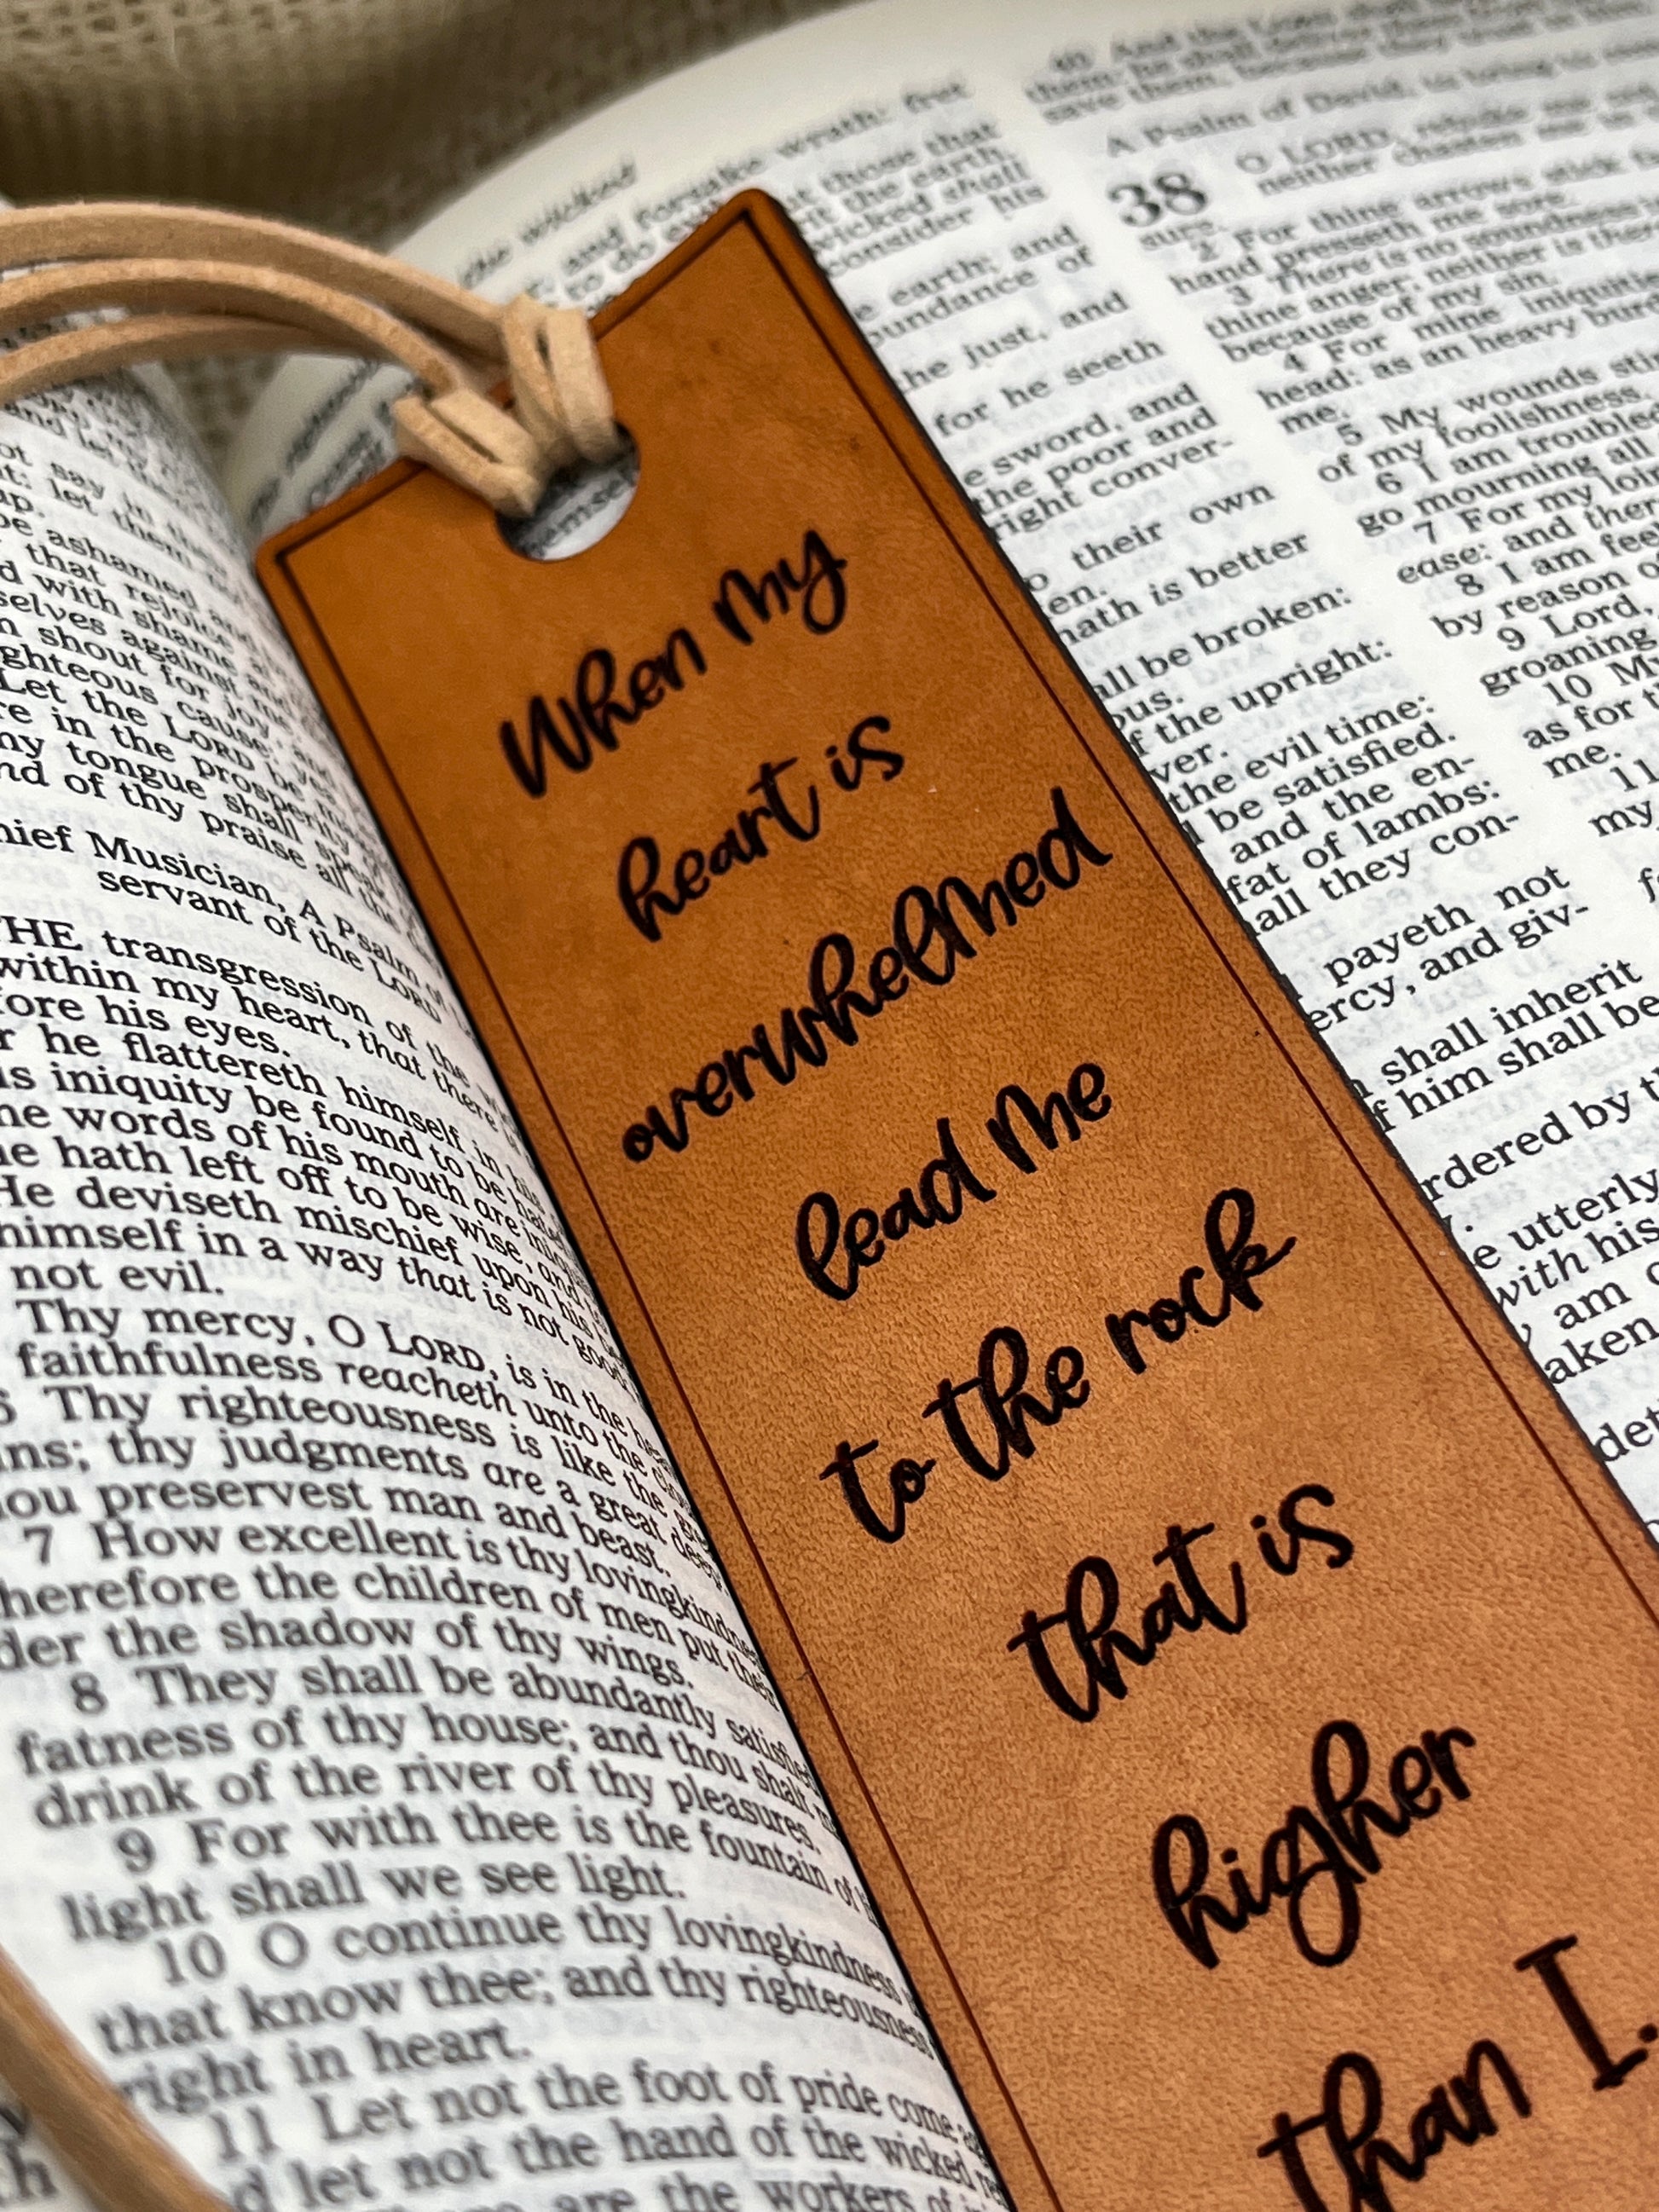 When my
heart is
overwhelmed
lead me
to the rock
that is
higher
than I.
ot say in
t: let them
be ashamed
that rejoice
d with shame
selves against me
n shout for joy, and
ghteous cause:
Let the LORD be
re in the prosperity
my tongue shall speak
nd of thy praise all the
hief Musician, A Psalm of
servant of the LORD
THE transgression of the
within my heart, that there
fore his eyes.
r he flattereth himself in his
is iniquity be found to be hateful
he words of his mouth are
he hath left off to be wise, and
He deviseth mischief upon his
himself in a way that is not good
not evil.
Thy mercy, O LORD, is in the
faithfulness reacheth unto the
6 Thy righteousness is like the
ns; thy judgments are a great deep
ou preservest man and beast.
7 How excellent is thy lovingkindness
herefore the children of men put their
der the shadow of thy wings.
8 They shall be abundantly satisfied
fatness of thy house; and thou shalt
drink of the river of thy pleasures.
9 For with thee is the fountain of
light shall we see light.
10 O continue thy lovingkindness
that know thee; and thy righteousness
right in heart.
11 Let not the foot of pride come
d let not the hand of the wicked
are the workers of
the wicked
and forsake wrath: fret
those that
the earth.
wicked shall
consider his
earth; and
bundance of
he just, and
for he seeth
e sword, and
the poor and
right conver-
o their own
en.
hath is better
all be broken:
ous.
f the upright:
ver.
the evil time:
be satisfied.
and the en-
fat of lambs:
all they con-
payeth not
ercy, and giv-
shall inherit
f him shall be
rdered by
e utterly
with his
am
aken
40 And the LORD shall
them: he shall
save them, because they trust in him
A Psalm of David, to bring to
38 O LORD, rebuke me not
neither chasten me in
sure.
2 For thine arrows stick
hand presseth me sore.
3 There is no soundness
thine anger; neither is there
because of my sin.
4 For mine iniquities
head: as an heavy
me.
5 My wounds
of my foolishness.
6 I am troubled
go mourning all
7 For my loins
ease: and
8 I am
by reason
9 Lord,
groaning
10 My
as for
me.
11
my